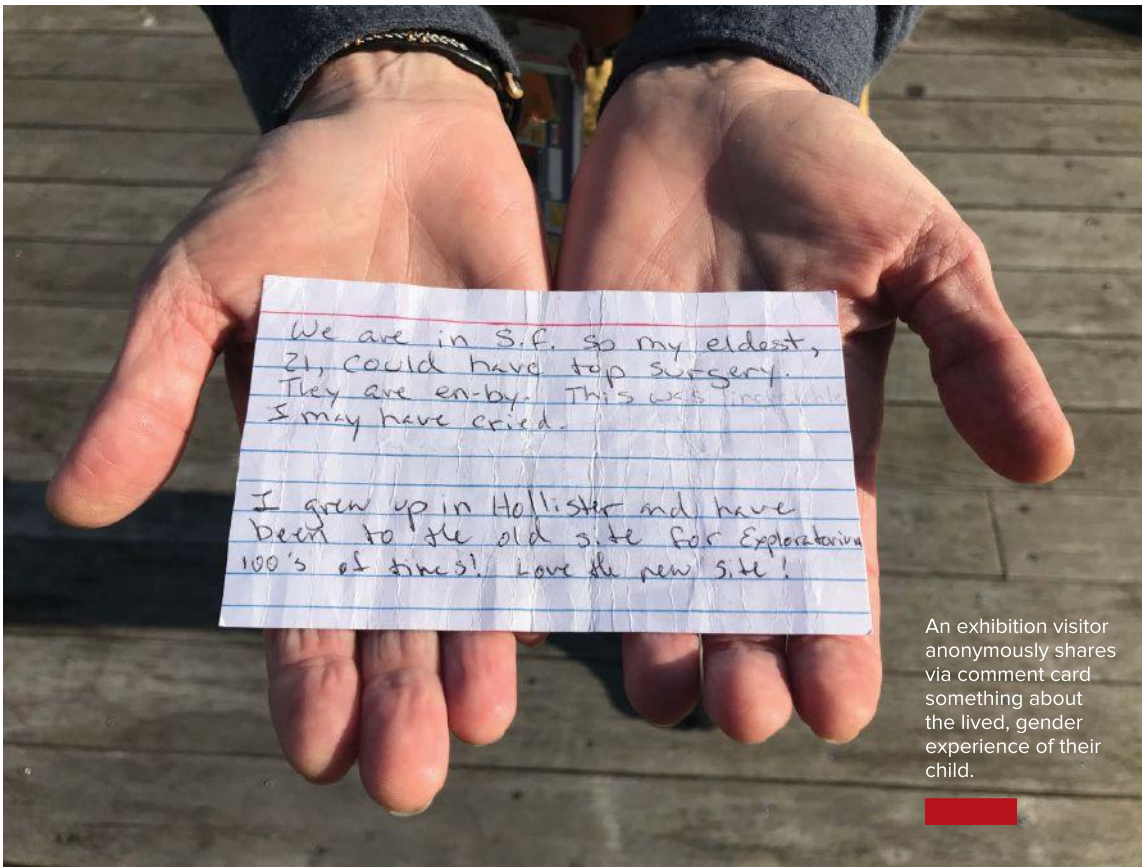 We are in S.F. so my eldest,
21, could have top surgery.
They are en-by. This was
I may have cried.
I grew up in Hollister and have
been to the old site for Exploratorium
100's of times! Love the new site!
An exhibition visitor
anonymously shares
via comment card
something about
the lived, gender
experience of their
child.